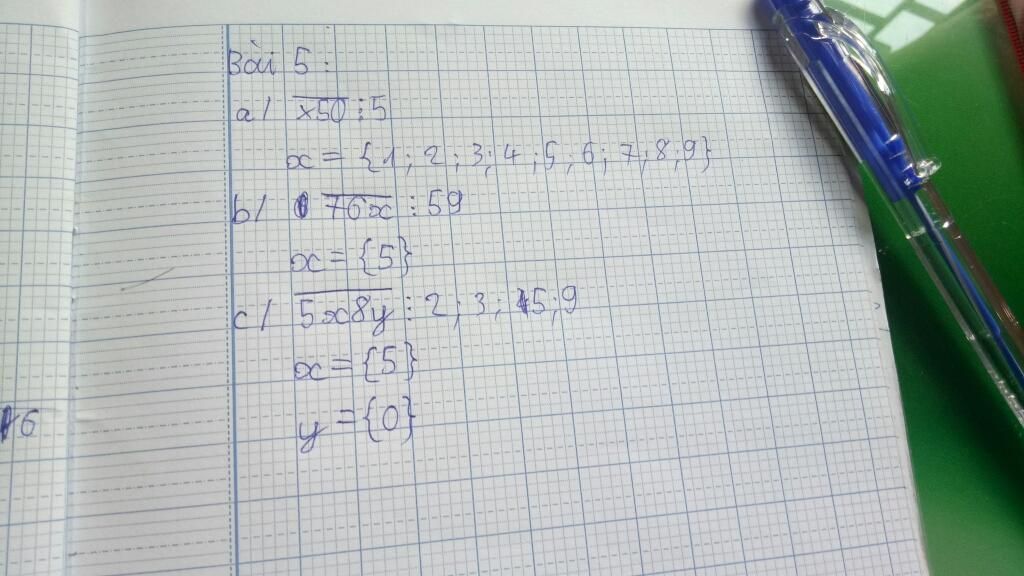 Bài 5 :
a/ x50 ⋮ 5
x = {1 ; 2 ; 3 ; 4 ; 5 ; 6 ; 7 ; 8 ; 9}
b/ 76x ⋮ 59
x = {5}
c/ 5x8y ⋮ 2 ; 3 ; 5 ; 9
x = {5}
y = {0}
6